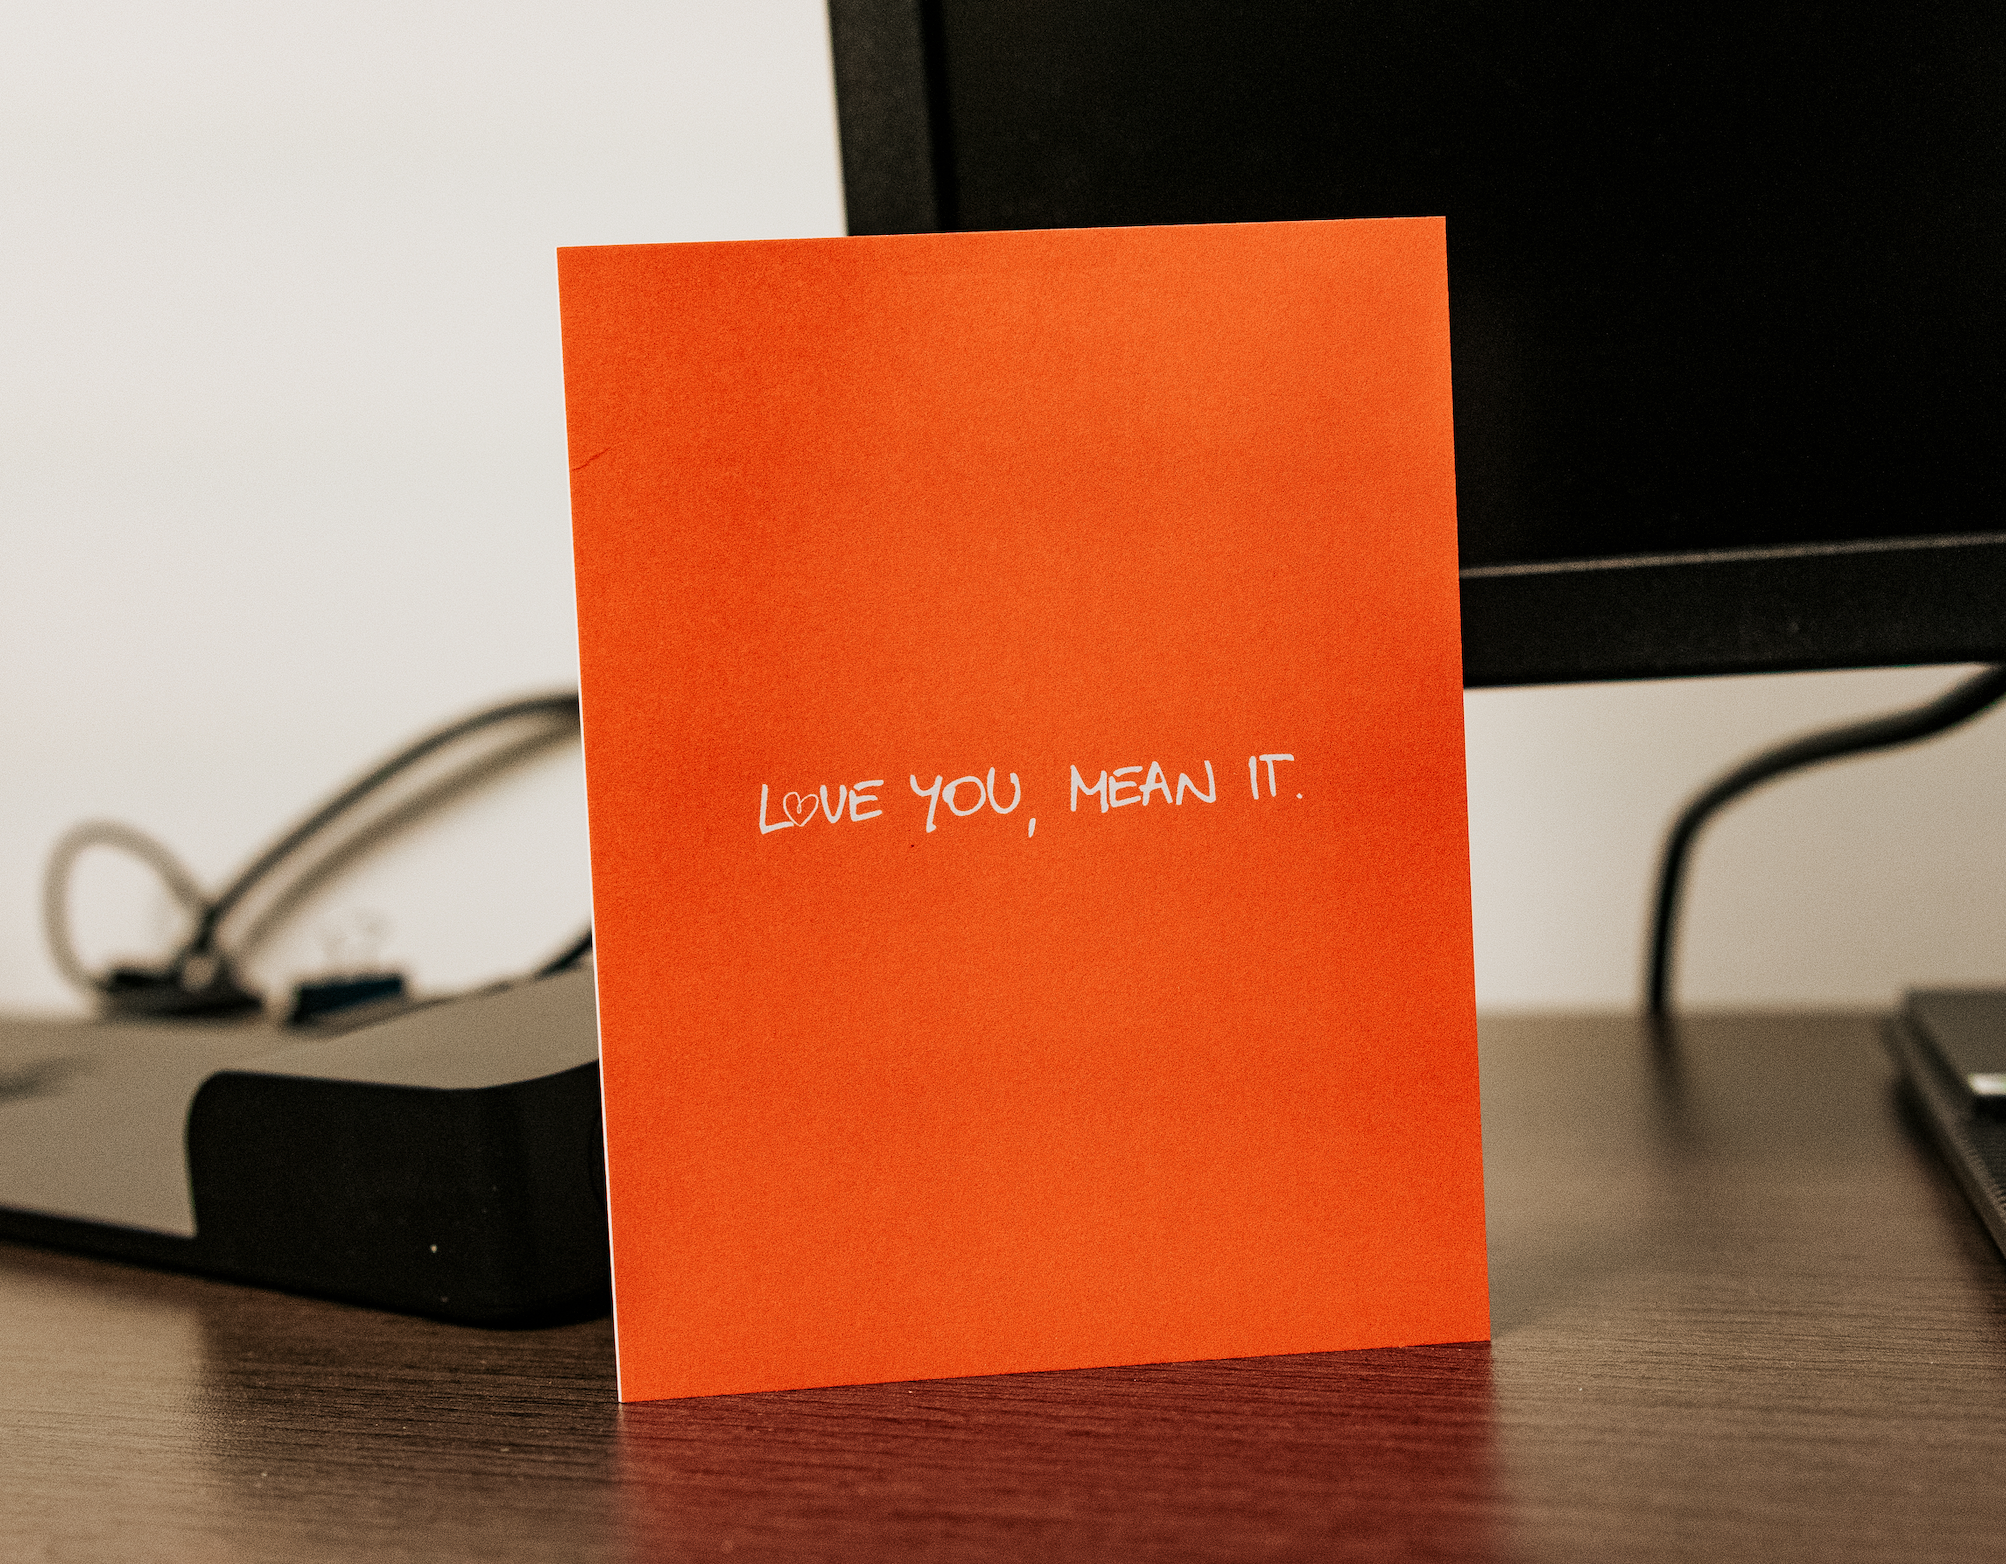 LOVE YOU, MEAN IT.